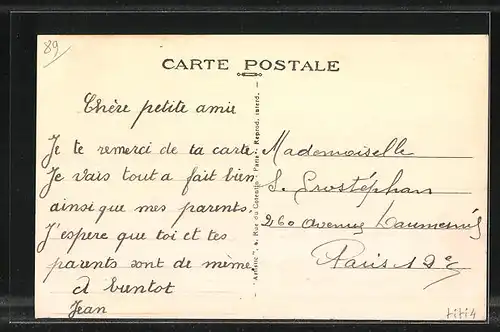 89
CARTE POSTALE
Chère petite amie
Je te remerci de ta carte
Je vais tout a fait bien
ainsi que mes parents.
J'espere que toi et tes
parents sont de même
A bientot
Jean
Mademoiselle
S. Prostéphan
260 avenue Daumesnil
Paris 12e
"Artistic", 6, Rue du Cotentin - Paris - Reprod. interd.
titi4